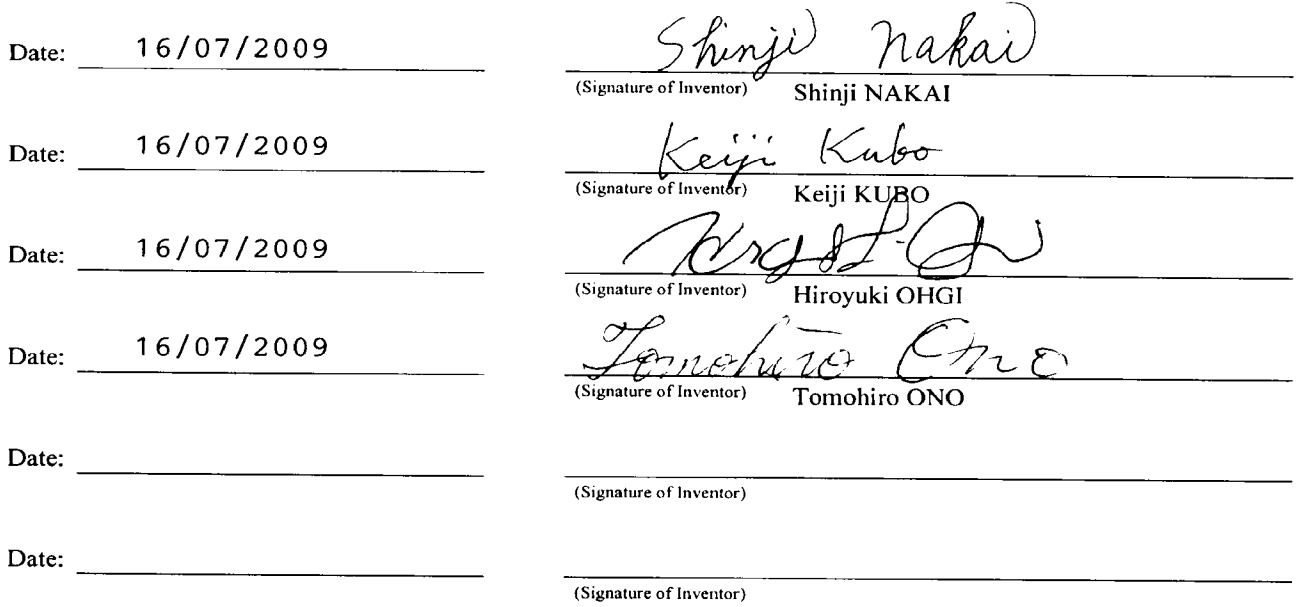 Date: 16/07/2009 Shinji Nakai
(Signature of Inventor) Shinji NAKAI
Date: 16/07/2009 Keiji Kubo
(Signature of Inventor) Keiji KUBO
Date: 16/07/2009
(Signature of Inventor) Hiroyuki OHGI
Date: 16/07/2009 Tomohiro Ono
(Signature of Inventor) Tomohiro ONO
Date:
(Signature of Inventor)
Date:
(Signature of Inventor)